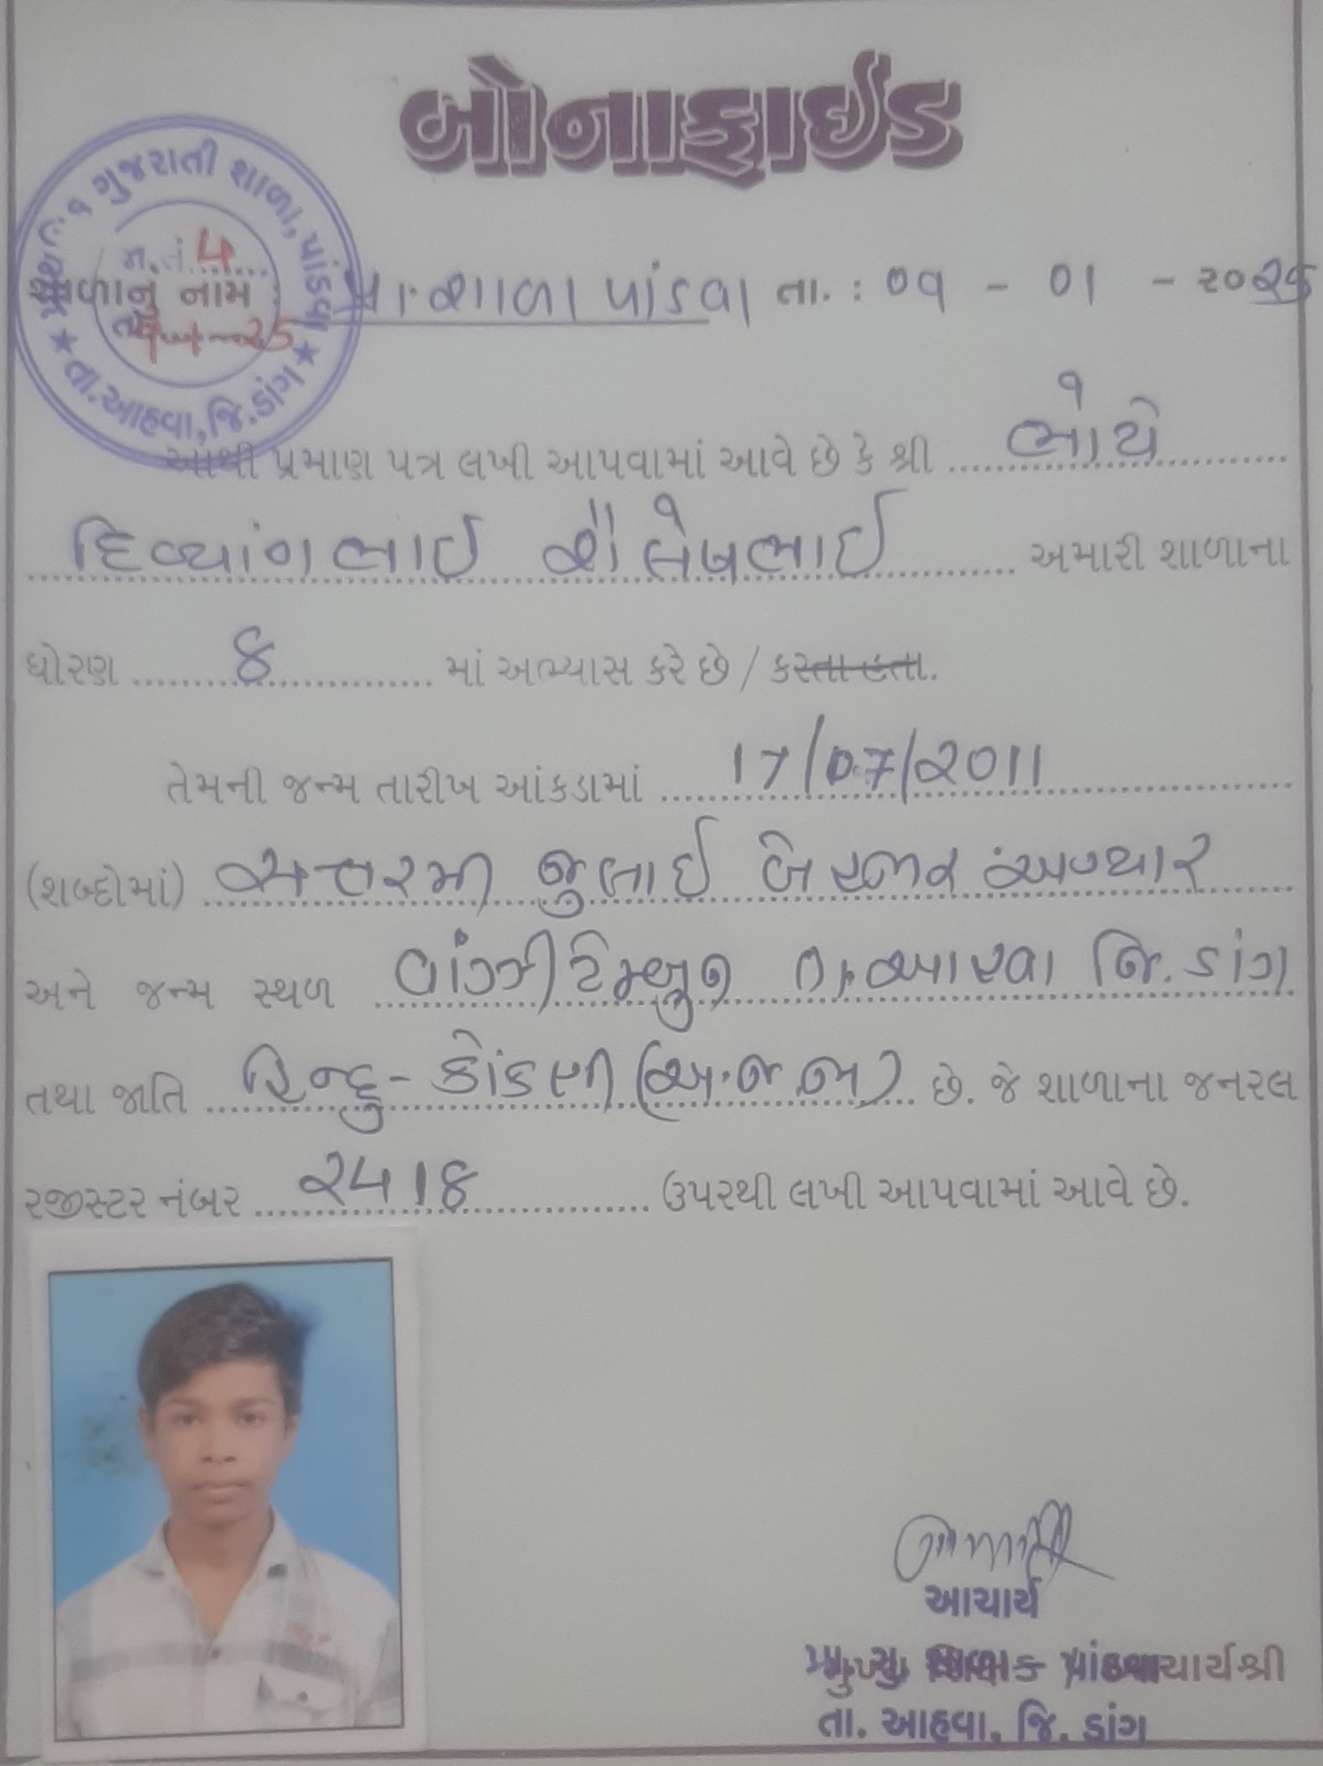 બોનાફાઈડ
ગુજરાતી શાળા, પાંડવા
તા. આહવા, જિ. ડાંગ
શાળાનું નામ પ્રા. શાળા પાંડવા તા. : ૦૧ - 01 - ૨૦૨૬
આથી પ્રમાણ પત્ર લખી આપવામાં આવે છે કે શ્રી ભોયે
દિવ્યાંગભાઈ શૈલેષભાઈ અમારી શાળાના
ધોરણ ૪ માં અભ્યાસ કરે છે / કરતા હતા.
તેમની જન્મ તારીખ આંકડામાં 17/07/2011
(શબ્દોમાં) સત્તરમી જુલાઈ બે હજાર અગ્યાર
અને જન્મ સ્થળ તા. આહવા જિ. ડાંગ
તથા જાતિ હિન્દુ - કોંકણી (અ.જ.જા) છે. જે શાળાના જનરલ
રજીસ્ટર નંબર ઉપરથી લખી આપવામાં આવે છે.
આચાર્ય
આચાર્યશ્રી
તા. આહવા, જિ. ડાંગ